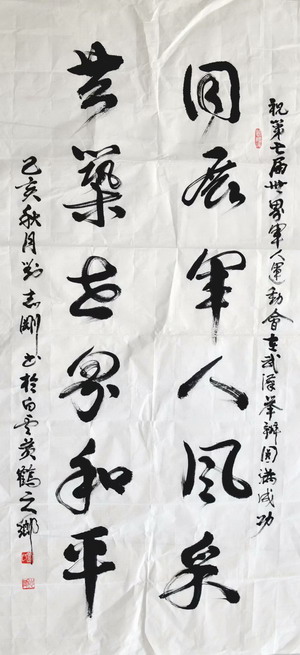 祝第七届世界軍人運動會在武漢舉辦圆满成功
同展軍人風采
共築世界和平
己亥秋月劉志剛书於白雲黄鶴之鄉